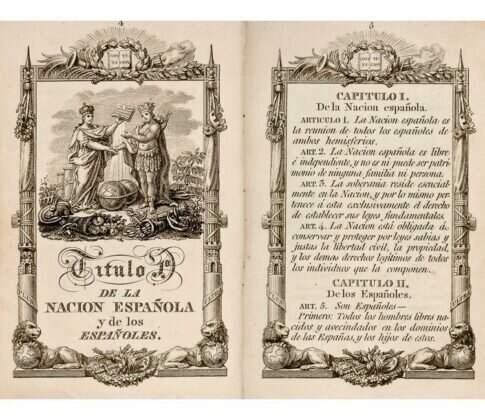 4
Titulo I.
DE LA
NACION ESPAÑOLA
y de los
ESPAÑOLES.
5
CAPITULO I.
De la Nacion española.
ARTICULO 1. La Nacion española es
la reunion de todos los españoles de
ambos hemisferios.
ART. 2. La Nacion española es libre
é independiente, y no es ni puede ser patri
monio de ninguna familia ni persona.
ART. 3. La soberania reside esencial
mente en la Nacion, y por lo mismo per
tenece á esta exclusivamente el derecho
de establecer sus leyes fundamentales.
ART. 4. La Nacion está obligada á
conservar y proteger por leyes sabias y
justas la libertad civil, la propiedad,
y los demas derechos legitimos de todos
los individuos que la componen.
CAPITULO II.
De los Españoles.
ART. 5. Son Españoles—
Primero: Todos los hombres libres na
cidos y avecindados en los dominios
de las Españas, y los hijos de estos.